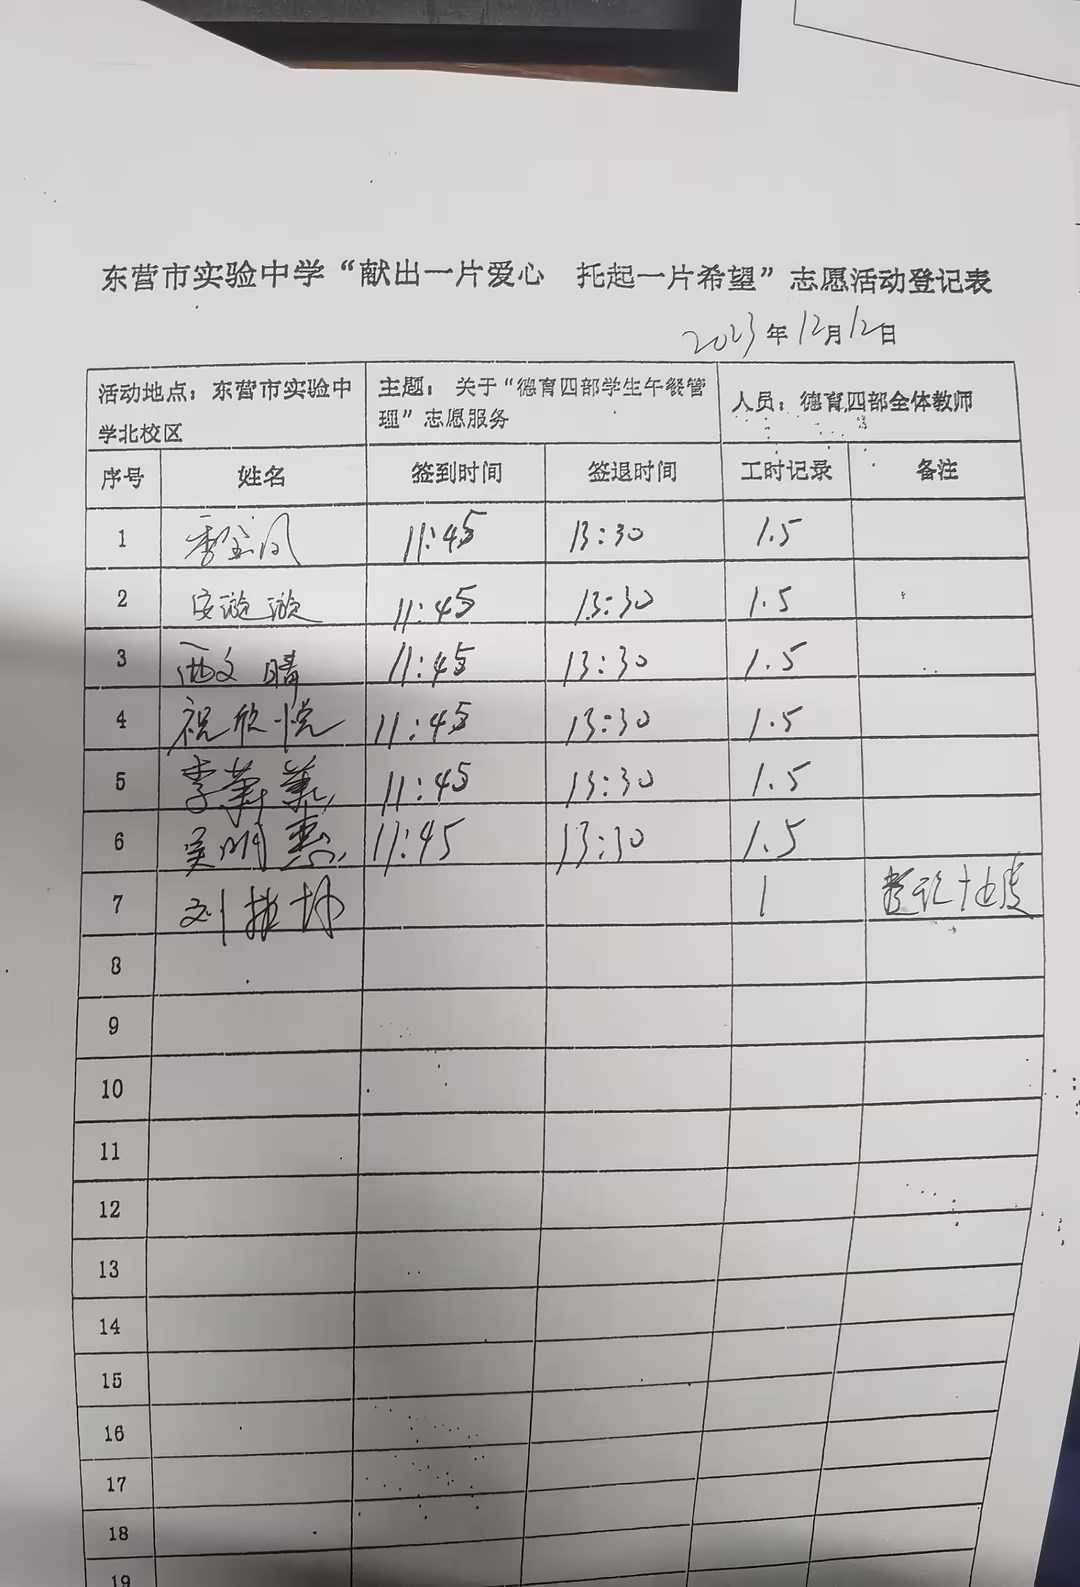 东营市实验中学“献出一片爱心 托起一片希望”志愿活动登记表
2023年12月12日
活动地点：东营市实验中学北校区 主题：关于“德育四部学生午餐管理”志愿服务 人员：德育四部全体教师
序号 姓名 签到时间 签退时间 工时记录 备注
1 11:45 13:30 1.5
2 安璇璇 11:45 13:30 1.5
3 西文晴 11:45 13:30 1.5
4 祝欣悦 11:45 13:30 1.5
5 李 11:45 13:30 1.5
6 吴明惠 11:45 13:30 1.5
7 刘 1
8
9
10
11
12
13
14
15
16
17
18
19